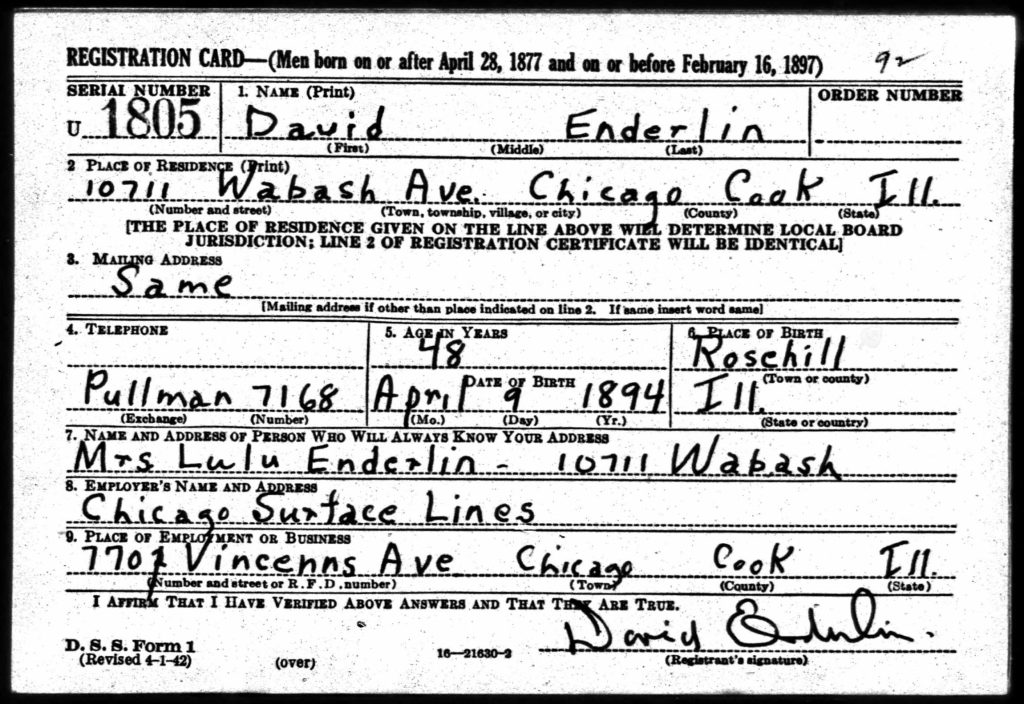 REGISTRATION CARD—(Men born on or after April 28, 1877 and on or before February 16, 1897) 92
SERIAL NUMBER 1. NAME (Print) ORDER NUMBER
U 1805 David Enderlin
(First) (Middle) (Last)
2 PLACE OF RESIDENCE (Print)
10711 Wabash Ave. Chicago Cook Ill.
(Number and street) (Town, township, village, or city) (County) (State)
[THE PLACE OF RESIDENCE GIVEN ON THE LINE ABOVE WILL DETERMINE LOCAL BOARD
JURISDICTION; LINE 2 OF REGISTRATION CERTIFICATE WILL BE IDENTICAL]
3. MAILING ADDRESS
Same
[Mailing address if other than place indicated on line 2. If same insert word same]
4. TELEPHONE 5. AGE IN YEARS 6. PLACE OF BIRTH
48 Rosehill
DATE OF BIRTH (Town or county)
Pullman 7168 April 9 1894 Ill.
(Exchange) (Number) (Mo.) (Day) (Yr.) (State or country)
7. NAME AND ADDRESS OF PERSON WHO WILL ALWAYS KNOW YOUR ADDRESS
Mrs Lulu Enderlin - 10711 Wabash
8. EMPLOYER'S NAME AND ADDRESS
Chicago Surface Lines
9. PLACE OF EMPLOYMENT OR BUSINESS
7701 Vincenns Ave Chicago Cook Ill.
(Number and street or R. F. D. number) (Town) (County) (State)
I AFFIRM THAT I HAVE VERIFIED ABOVE ANSWERS AND THAT THEY ARE TRUE.
David Enderlin.
D. S. S. Form 1
(Revised 4-1-42) (over) 16—21630-2 (Registrant's signature)